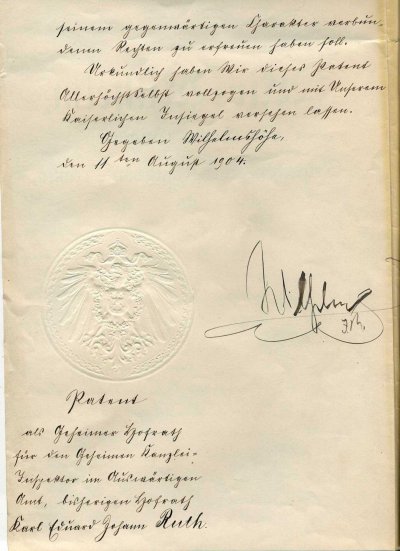 seinem gegenwärtigen Charakter verbun-
denen Rechten zu erfreuen haben soll.
Urkundlich haben Wir dieses Patent
Allerhöchstselbst vollzogen und mit Unserem
Kaiserlichen Insiegel versehen lassen.
Gegeben Wilhelmshöhe,
den 11ten August 1904.
Wilhelm
I.R.
Patent
als Geheimer Hofrath
für den Geheimen Kanzlei-
Inspektor im Auswärtigen
Amt, bisherigen Hofrath
Karl Eduard Johann Ruth.